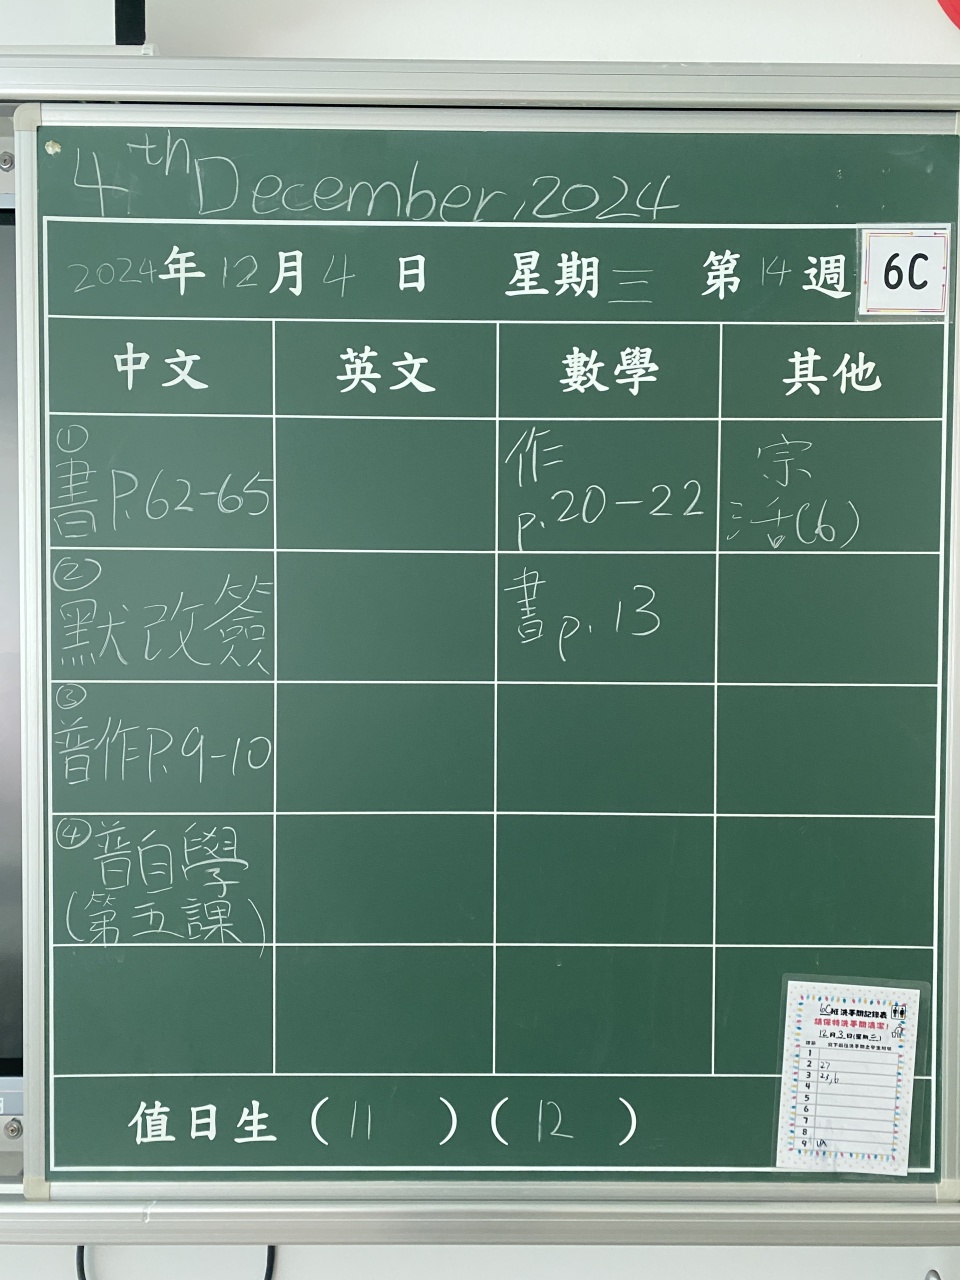 4th December, 2024
2024年12月4日 星期三 第14週 6C
中文 英文 數學 其他
①
書P.62-65
作
p.20-22
宗
活(6)
②
默改簽
書p.13
③
普作P.9-10
④普自學
(第五課)
值日生(11)(12)
6C班洗手間記錄表
請保持洗手間清潔!
12月3日(星期三)
1
2 27
3 23,6
4
5
6
7
8
9